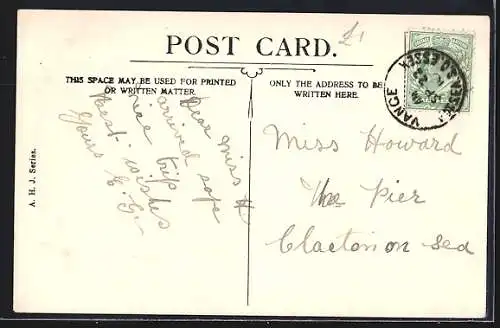 £1
POST CARD.
THIS SPACE MAY BE USED FOR PRINTED
OR WRITTEN MATTER.
ONLY THE ADDRESS TO BE
WRITTEN HERE.
Dear Miss H
arrived safe
nice trip
Best wishes
Yours E. G.
Miss Howard
The Pier
Clacton on Sea
A. H. J. Series.
VANGE
ESSEX